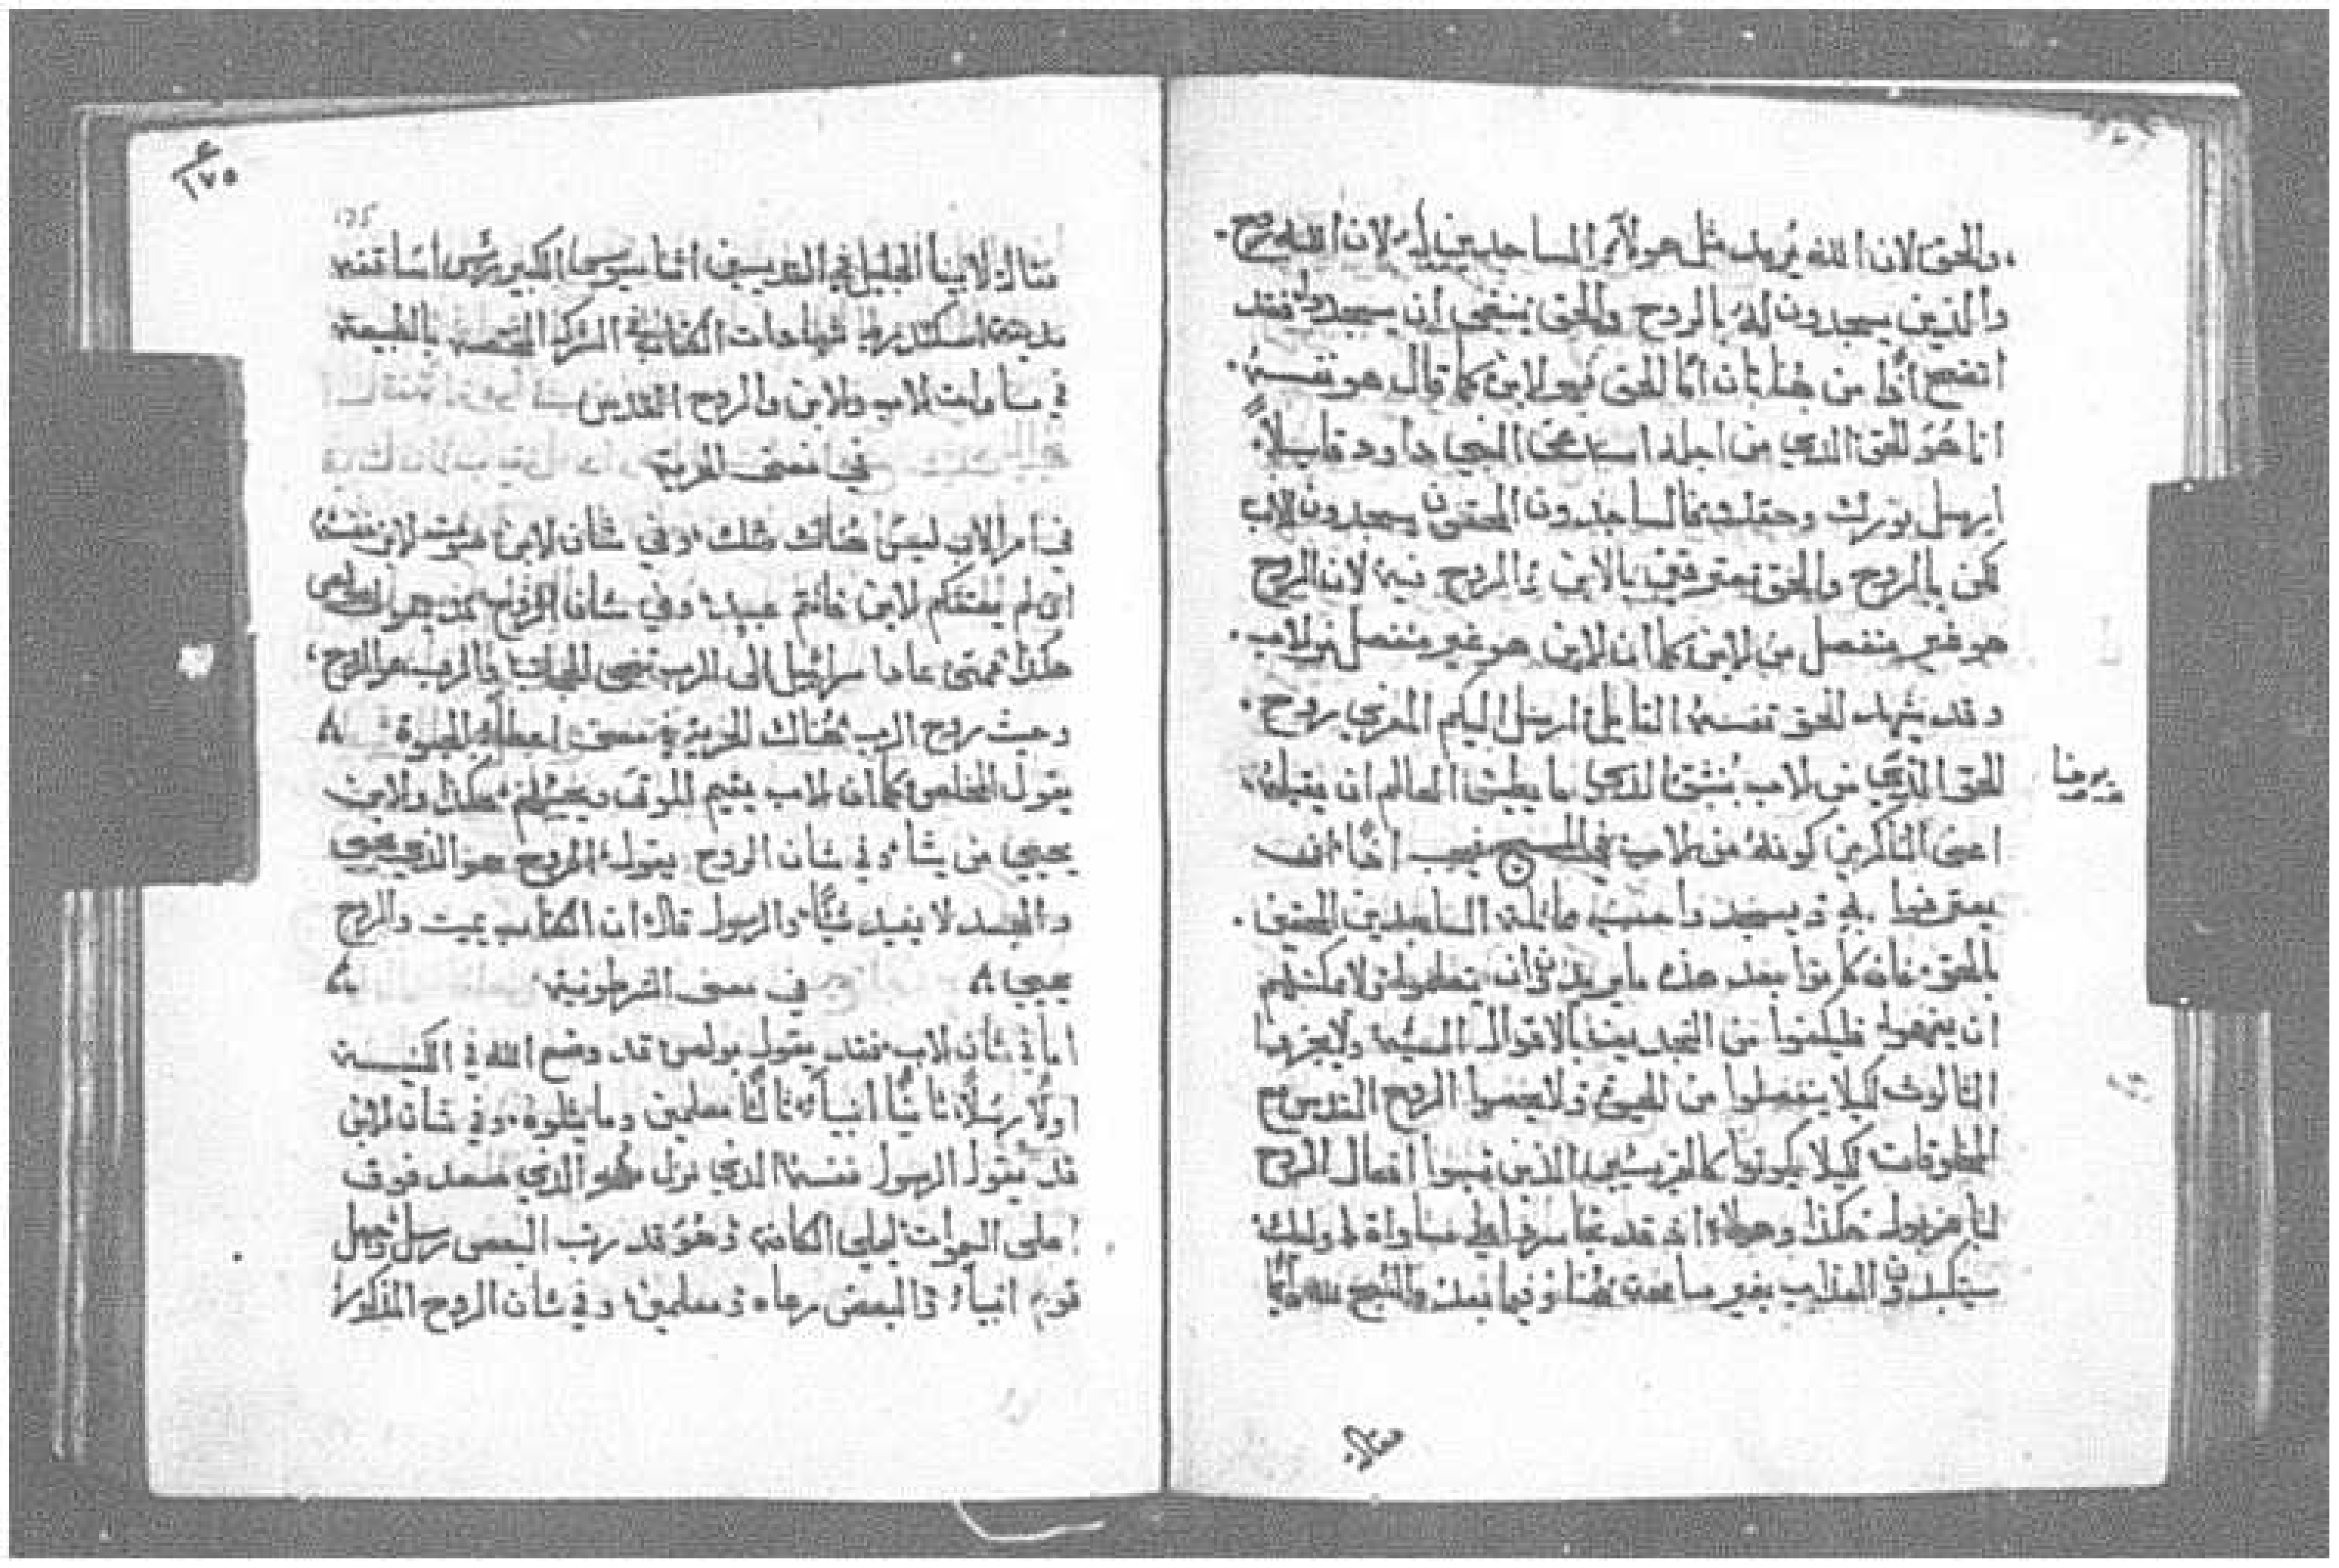 والحق لان الله يُريد مثل هولآء الساجدين له لان الله روح.
والذين يسجدون لهُ بالروح والحق ينبغي ان يسجدوا فقد
اتضح اذًا من هنا بان امّا الحق فهو الابن كما قال هو نفسهُ.
انا هُوَ الحق الذي من اجله استدعى النبي داوود قايلاً.
ارسل نورك وحقك فالساجدون المحقون يسجدون للاب
لكن بالروح والحق معترفين بالابن وبالروح فيه لان الروح
هو غير منفصل من الابن كما ان الابن هو غير منفصل من الاب.
وقد يشهد الحق نفسهُ القايل ارسل اليكم المعزي روح.
الحق الذي من الاب يُنبثق الذي ما يطيق العالم ان يقبلهُ.
يوحنا
اعنى الناكرين كونهُ من الاب
يعترفوا به ويسجد واحسب مايلة الساجدين المحقين.
بالحق فان كانوا بعد هذه ما يريدون ان يتعلموا ولا يمكنهم
ان يفهموا فليكفوا من التجديف بالاقوال السيّة ولا يجزوا
الثالوث لكيلا ينفصلوا من الحيوة ولا يحصوا الروح القدس مع
المخلوقات لكيلا يكونوا كالفريسيين الذين نسبوا افعال الروح
لباعزبول هكذا وهولاء اذ قد تجاسروا على مساواة اولئك
سيتكبدون العذاب بغير سامحة هُنا وفيما بعد والمجد لله دائمًا
مقالة
١٧٥
175
مقالة لابينا الجليل في القديسين اثناسيوس الكبير رئيس اساقفة
مدينة اسكندرية شهادات الكتاب في الشركة المختصة بالطبيعة
في مساوات الاب والابن والروح القدس
في معنى الحرية
في امر الاب ليس هُناك شك، وفي شأن الابن هوت لابن نفسهُ
ان لم يعتقكم الابن فانتم عبيد، وفي شأن الروح
هكذا متى عاد اسرائيل الى الرب تنحى الحجاب والرب هو الروح،
وحيث روح الرب هُناك الحرية في معنى اعطاء الحيوة
يقول المخلص كما ان الاب يقيم الموتى ويحييهم هكذا والابن
يحيي من يشأ، وفي شأن الروح يقول الروح هو الذي يحيي
والجسد لا يفيد شيًّا والرسول قال ان الكتاب يميت والروح
يحيي في معنى الشرطونية
اما في شأن الاب فقد يقول بولس قد وضع الله في الكنيسة
اولًا رسلًا ثانيًّا انبيآء ثالثًا معلمين وما يتلوه، وفي شأن الابن
قد يقول الرسول نفسهُ الذي نزل هو الذي صعد فوق
اعلى السموات ليملي الكافة وهُوَ قد رتب البعض رسل وجعل
قوم انبيآء والبعض رعاه ومعلمين، وفي شأن الروح المذكور